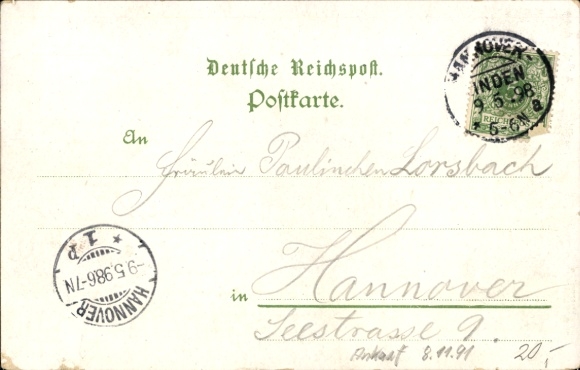 Deutsche Reichspost.
Postkarte.
HANNOVER-
LINDEN
9 5. 98
* 5-6N a
REICHSPOST
An
Fräulein Paulinchen Lorsbach
1 P *
-9.5.98.6-7N
HANNOVER
in Hannover
Seestrasse 9.
Ankauf 8.11.91 20,-